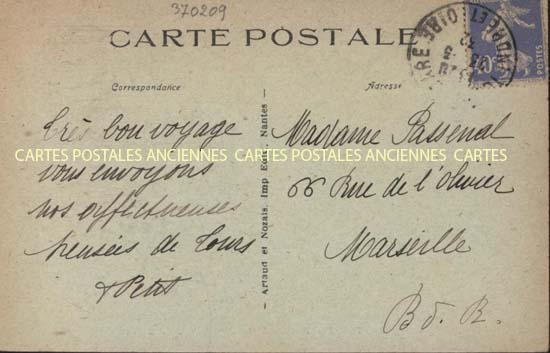 370209
CARTE POSTALE
Correspondance
Adresse
Très bon voyage
vous envoyons
nos affectueuses
pensées de Tours
Petit
Artaud et Nozais. Imp Edit. Nantes
Madame Passenal
66 Rue de l'olivier
Marseille
B d. R.
CARTES POSTALES ANCIENNES CARTES POSTALES ANCIENNES CARTES